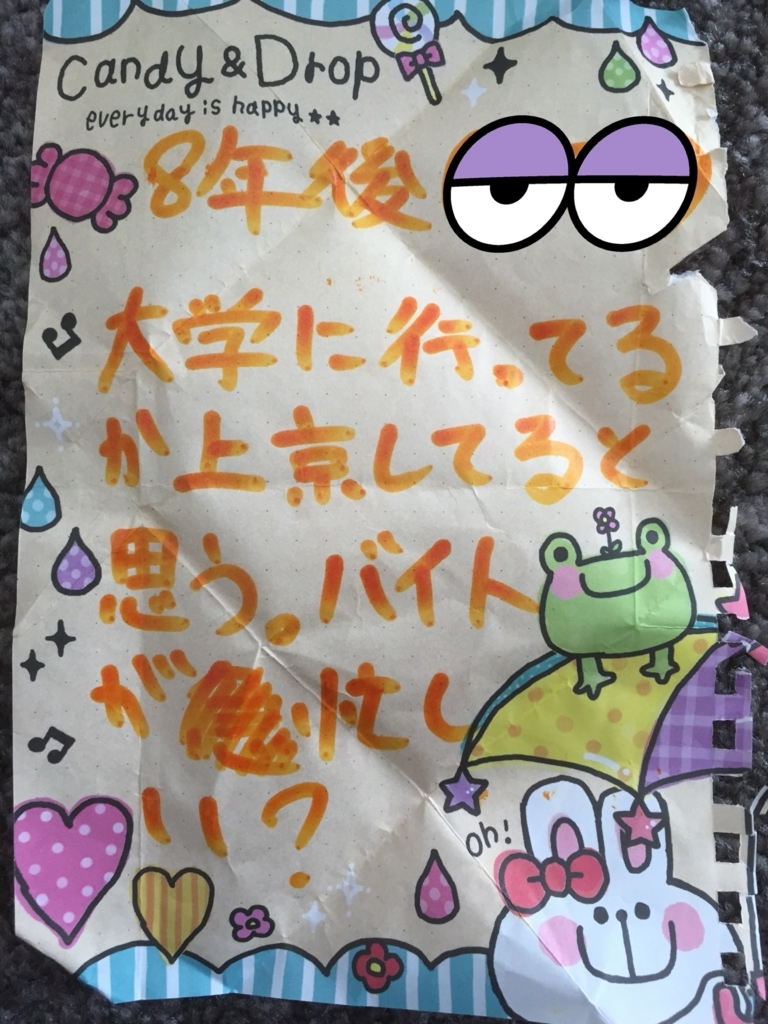 Candy & Drop
everyday is happy
8年後
大学に行ってる
か上京してると
思う。バイト
が忙し
い？
oh!